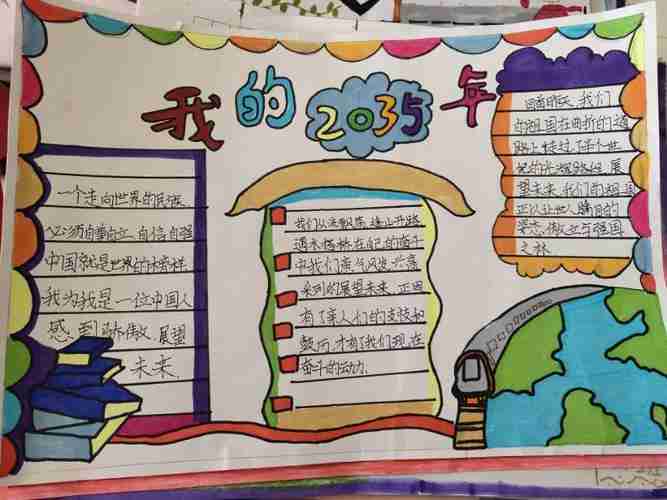 我的2035年
一个走向世界的民族
必须自尊自立、自信自强
中国就是世界的榜样
我为我是一位中国人
感到骄傲、展望
未来
遇水搭桥在自己的
中我们意气风发
的展望未来 正因
有了亲人们的支持和
鼓历,才有了我们现在
奋斗的动力
回首昨天,我们
的祖国在曲折的道
路上走过了半个世
纪的光辉路程 展
望未来 我们的祖国
正以让世人瞩目的
姿态,傲立于强国
之林